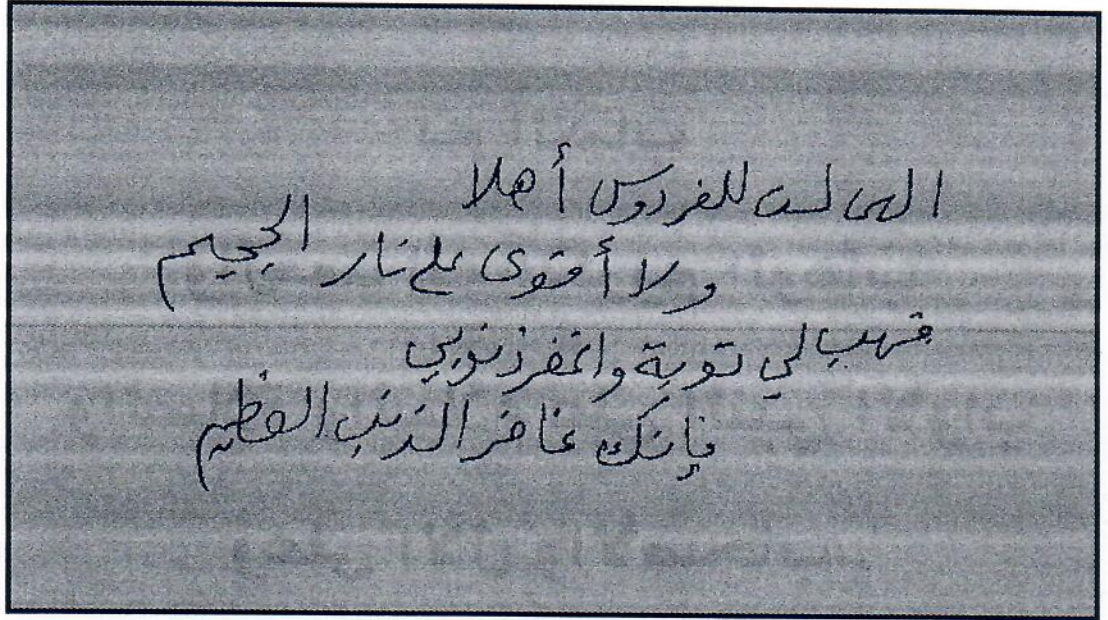 الهى لست للفردوس أهلا
ولا أقوى على نار الجحيم
فهب لي توبة واغفر ذنوبي
فإنك غافر الذنب العظيم